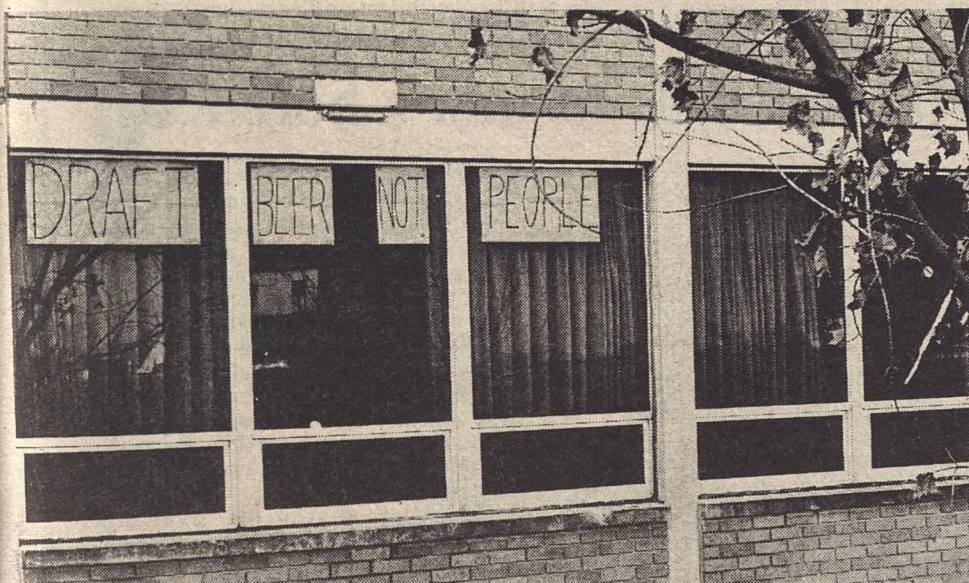 DRAFT BEER NOT PEOPLE